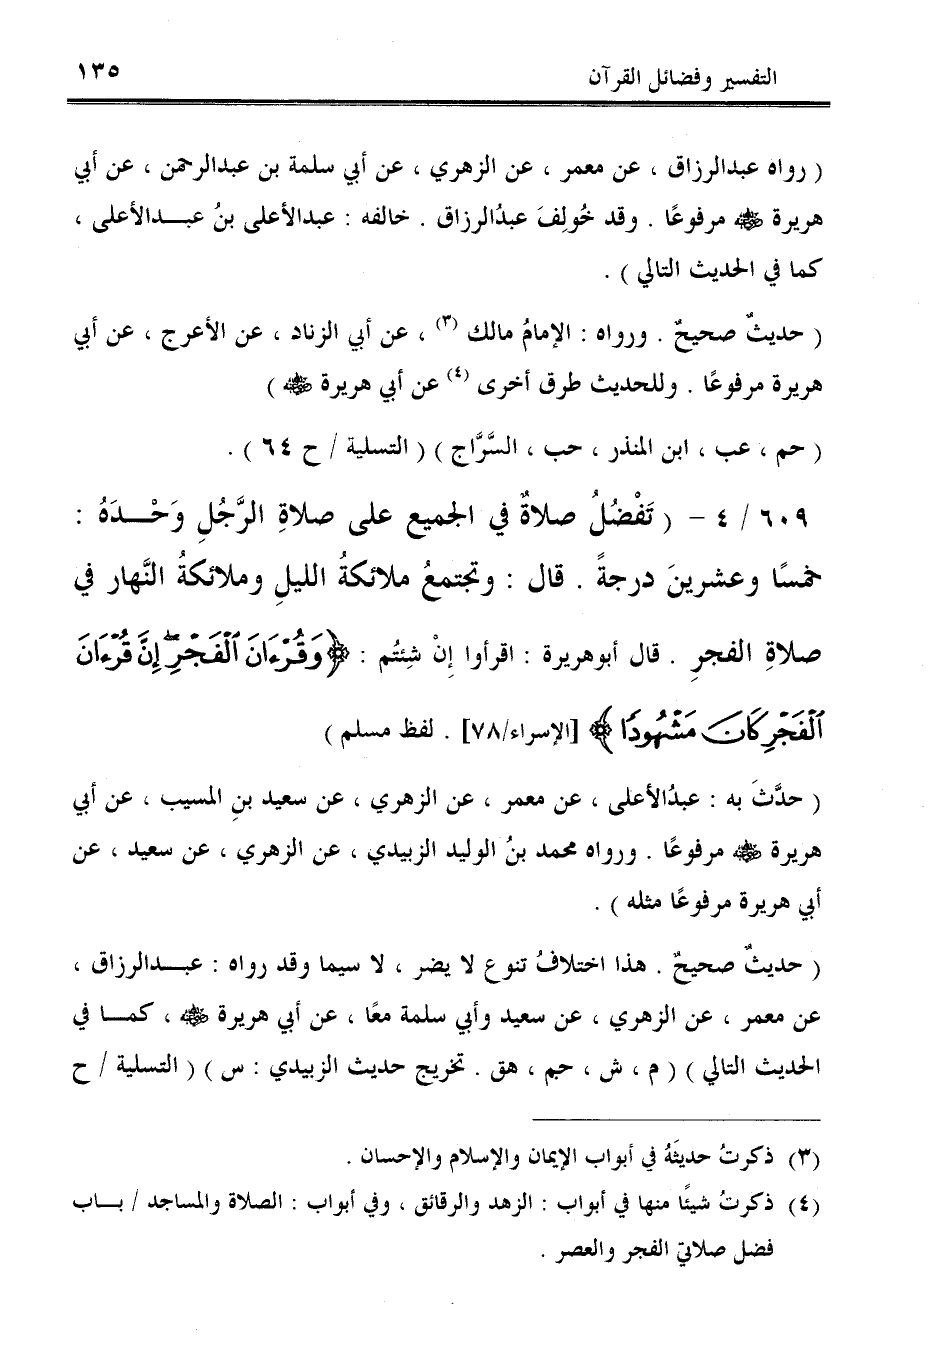 التفسير وفضائل القرآن ١٣٥
( رواه عبدالرزاق ، عن معمر ، عن الزهري ، عن أبي سلمة بن عبدالرحمن ، عن أبي
هريرة ﵁ مرفوعًا . وقد خُولِفَ عبدُالرزاق . خالفه : عبدالأعلى بنُ عبـــدالأعلى ،
كما في الحديث التالي ) .
( حديثٌ صحيحٌ . ورواه : الإمامُ مالك (٣) ، عن أبي الزناد ، عن الأعرج ، عن أبي
هريرة مرفوعًا . وللحديث طرق أخرى (٤) عن أبي هريرة ﵁ )
( حم ، عب ، ابن المنذر ، حب ، السَّرَّاج ) ( التسلية / ح ٦٤ ) .
٦٠٩ / ٤ - ( تَفْضُلُ صلاةٌ في الجميع على صلاةِ الرَّجُلِ وَحْـــدَهُ :
خمسًا وعشرينَ درجةً . قال : وتجتمعُ ملائكةُ الليلِ وملائكةُ النَّهار في
صلاةِ الفجرِ . قال أبوهريرة : اقرأوا إِنْ شِئتُم : ﴿وَقُرْءَانَ ٱلْفَجْرِ ۖ إِنَّ قُرْءَانَ
ٱلْفَجْرِ كَانَ مَشْهُودًا ﴾ [الإسراء/٧٨] . لفظ مسلم )
( حدَّثَ به : عبدُالأعلى ، عن معمر ، عن الزهري ، عن سعيد بنِ المسيب ، عن أبي
هريرة ﵁ مرفوعًا . ورواه محمد بنُ الوليد الزبيدي ، عن الزهري ، عن سعيد ، عن
أبي هريرة مرفوعًا مثله ) .
( حديثٌ صحيحٌ . هذا اختلافُ تنوع لا يضر ، لا سيما وقد رواه : عبـــدالرزاق ،
عن معمر ، عن الزهري ، عن سعيد وأبي سلمة معًا ، عن أبي هريرة ﵁ ، كمـــا في
الحديث التالي ) ( م ، ش ، حم ، هق . تخريج حديث الزبيدي : س ) ( التسلية / ح
(٣) ذكرتُ حديثَهُ في أبواب الإيمان والإسلام والإحسان .
(٤) ذكرتُ شيئًا منها في أبواب : الزهد والرقائق ، وفي أبواب : الصلاة والمساجد / بـــاب
فضل صلاتيّ الفجر والعصر .